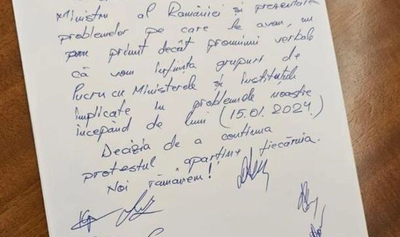 Ministru al României și prezentarea
problemelor pe care le avem, nu
am primit decât promisiuni verbale
că vom înființa grupuri de
lucru cu Ministerele și Instituțiile
implicate în problemele noastre
începând de luni (15.01.2024.)
Decizia de a continua
protestul aparține fiecăruia.
Noi rămânem!